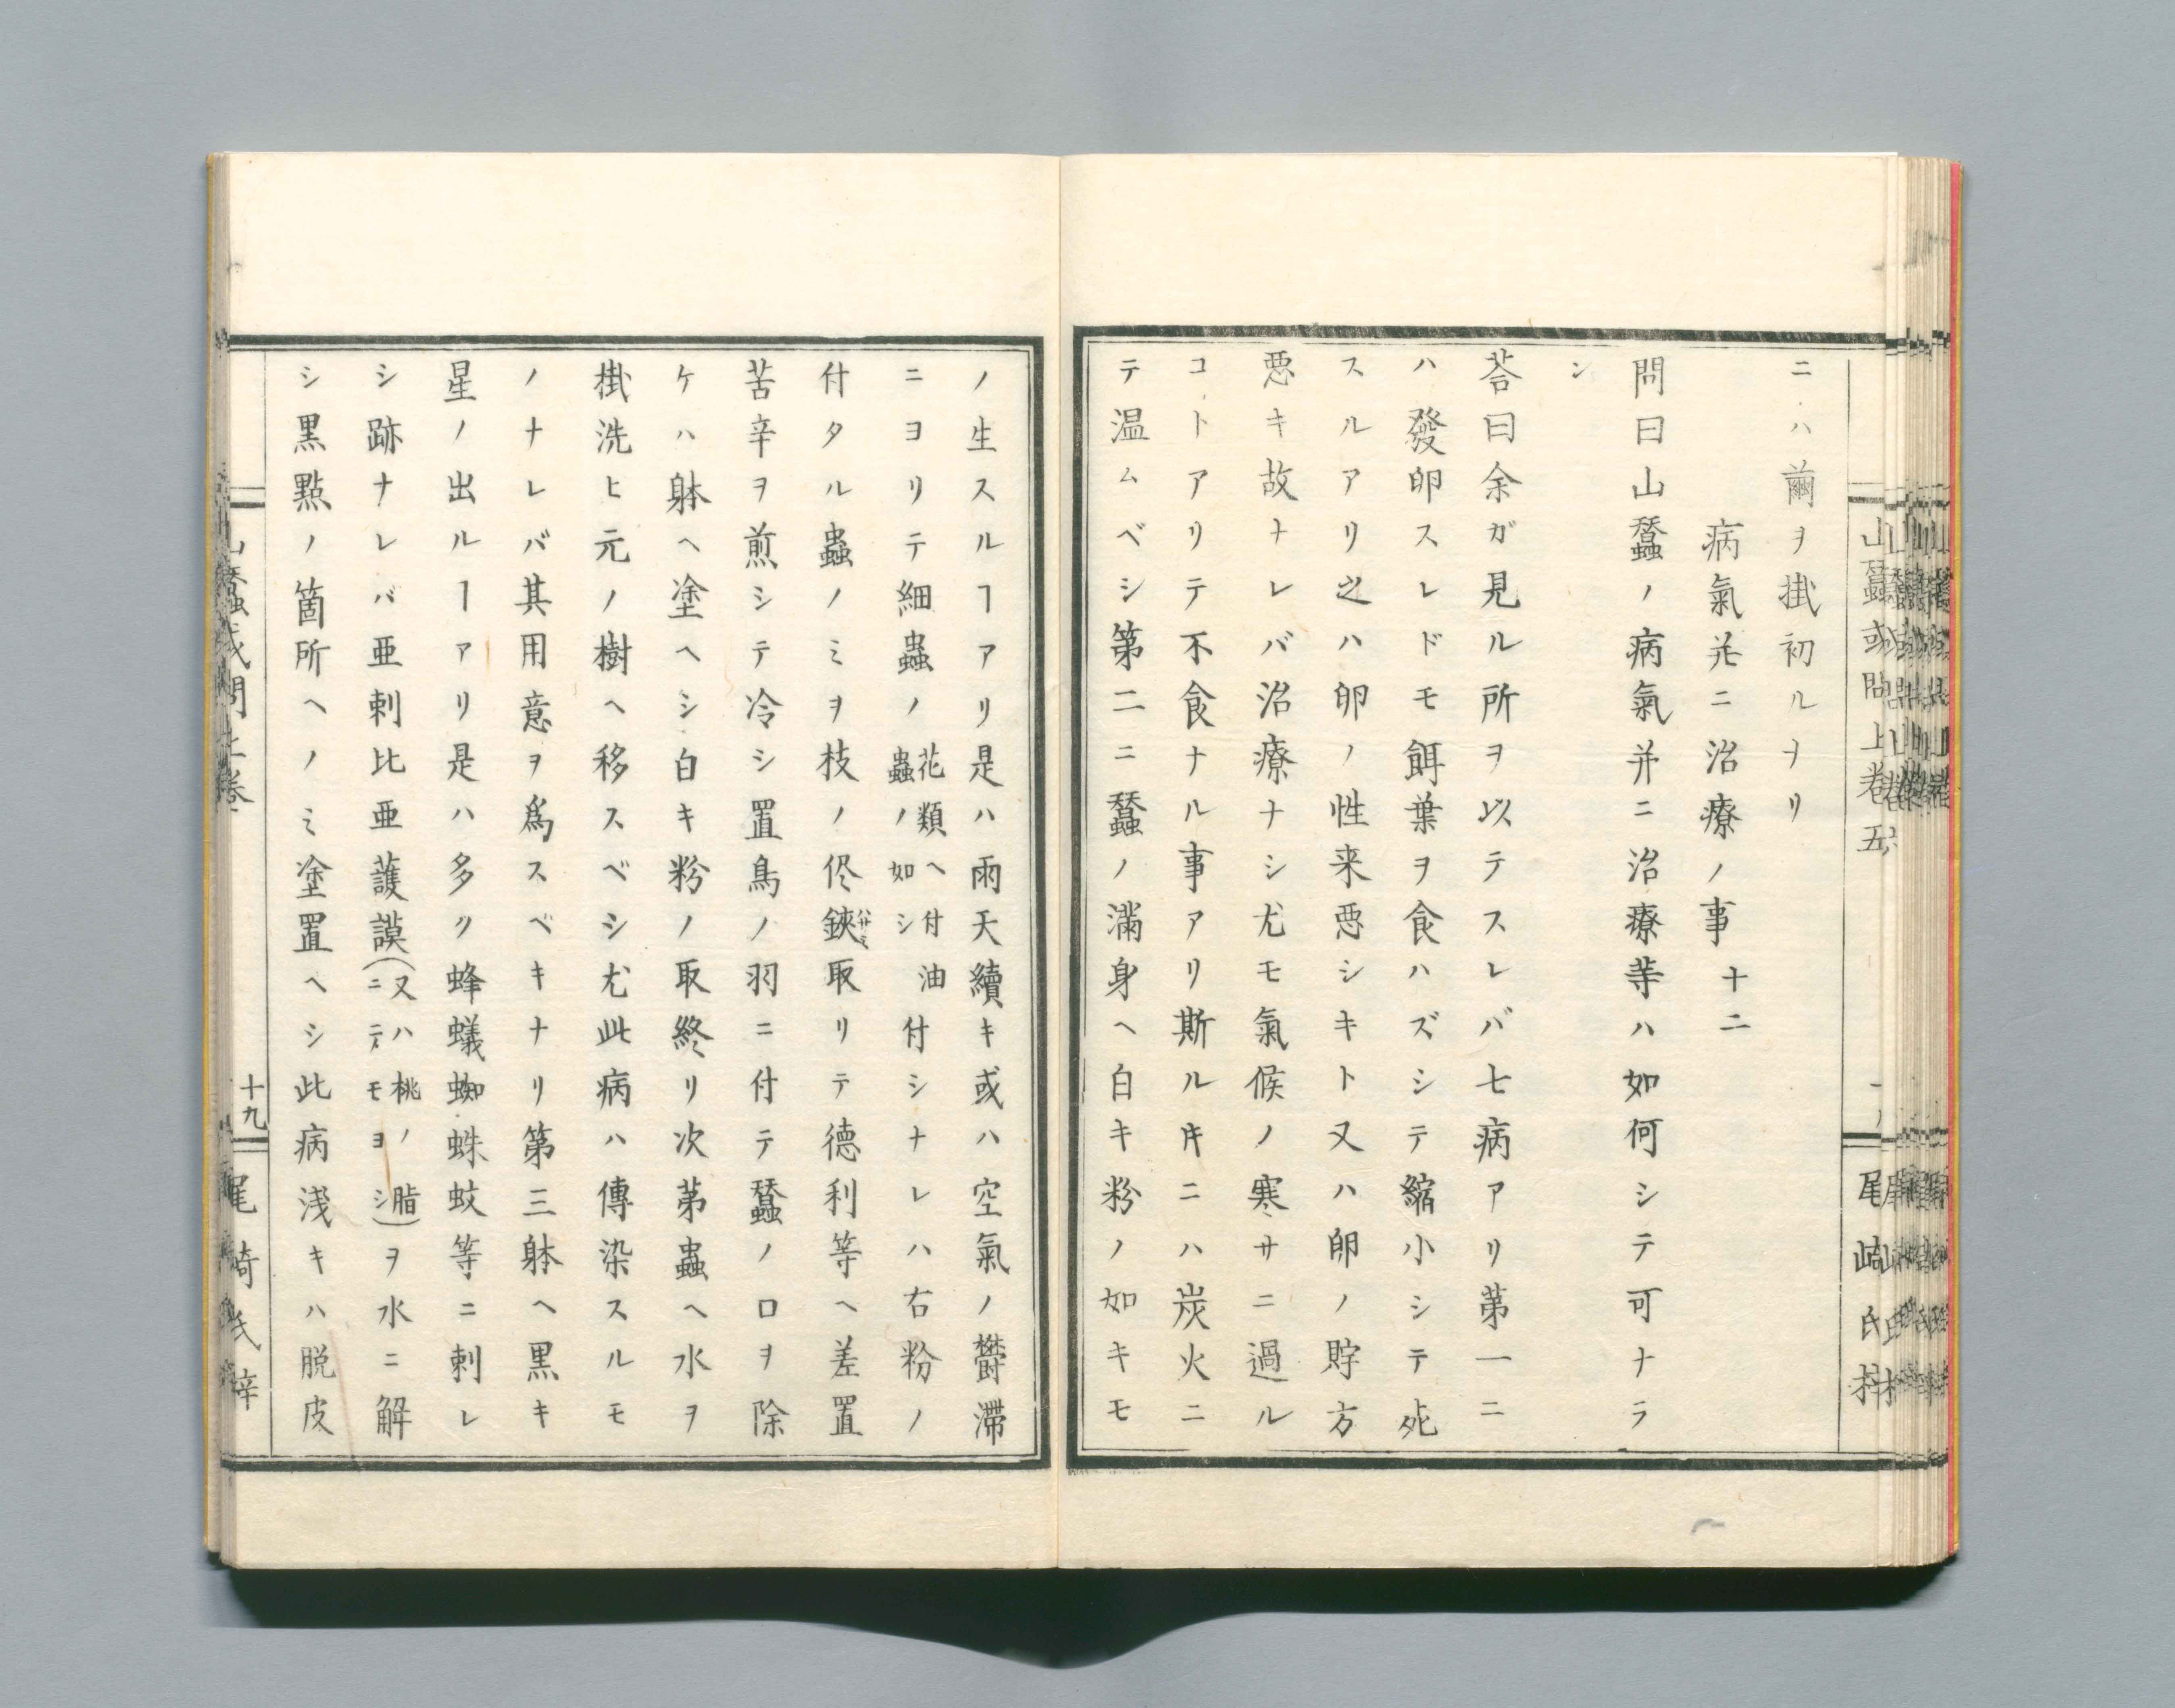 ニハ繭ヲ掛初ルヲリ
病氣并ニ治療ノ事 十二
問曰山蠶ノ病氣并ニ治療等ハ如何シテ可ナラ
ン
荅曰余ガ見ル所ヲ以テスレバ七病アリ第一ニ
ハ發卵スレドモ餌葉ヲ食ハズシテ縮小シテ死
スルアリ之ハ卵ノ性来悪シキト又ハ卵ノ貯方
悪キ故ナレバ治療ナシ尤モ氣候ノ寒サニ過ル
コトアリテ不食ナル事アリ斯ルキニハ炭火ニ
テ温ムベシ第二ニ蠶ノ滿身ヘ白キ粉ノ如キモ
ノ生スルヿアリ是ハ雨天續キ或ハ空氣ノ欝滯
ニヨリテ細蟲ノ花類ヘ付油蟲ノ如シ付シナレハ右粉ノ
付タル蟲ノミヲ枝ノ侭鋏ハサミ取リテ德利等ヘ差置
苦辛ヲ煎シテ冷シ置鳥ノ羽ニ付テ蠶ノ口ヲ除
ケハ躰ヘ塗ヘシ白キ粉ノ取終リ次第蟲ヘ水ヲ
掛洗ヒ元ノ樹ヘ移スベシ尤此病ハ傳染スルモ
ノナレバ其用意ヲ爲スベキナリ第三躰ヘ黒キ
星ノ出ルヿアリ是ハ多ク蜂蟻蜘蛛蚊等ニ刺レ
シ跡ナレバ亜剌比亜護謨(又ハ桃ノ脂ニテモヨシ)ヲ水ニ解
シ黒點ノ箇所ヘノミ塗置ヘシ此病淺キハ脱皮
山蠶或問上卷
十九
尾崎氏梓
山蠶或問上卷
尾崎氏梓